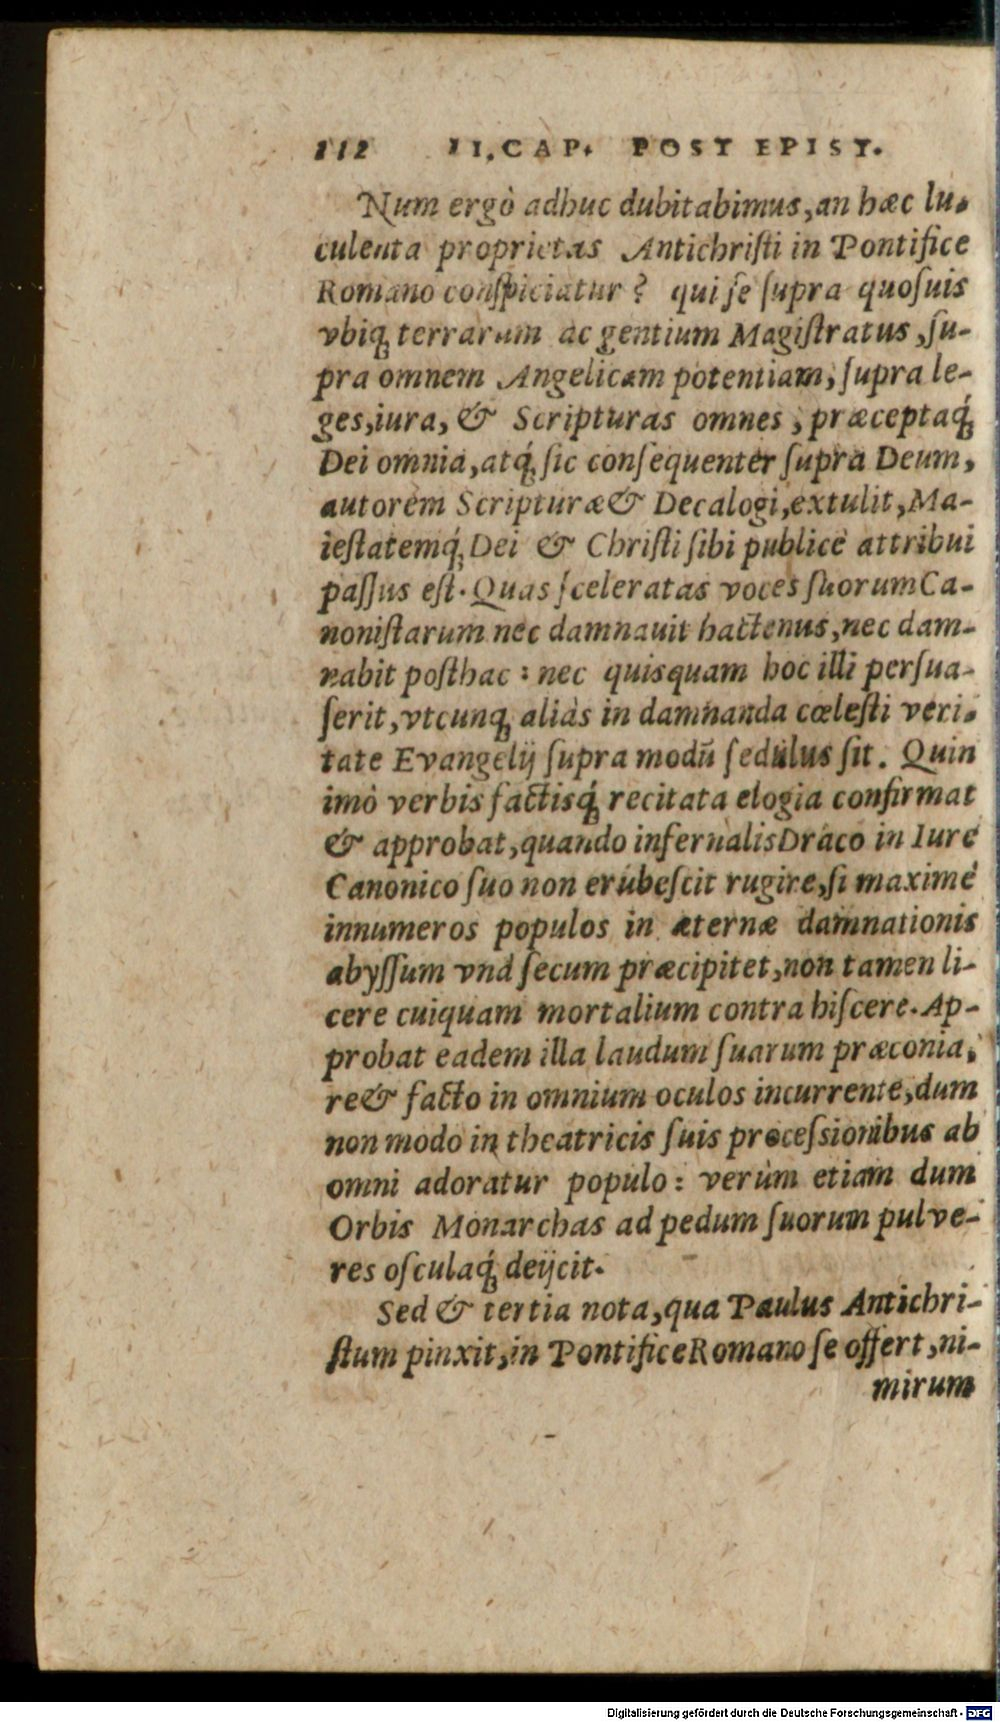 112 II. CAP. POST EPIST.
Num ergò adhuc dubitabimus, an hæc lu-
culenta proprietas Antichriſti in Pontifice
Romano conſpiciatur? qui ſe ſupra quoſuis
vbiq́ terrarum ac gentium Magiſtratus, ſu-
pra omnem Angelicam potentiam, ſupra le-
ges, iura, & Scripturas omnes, præceptaq́
Dei omnia, atq́ ſic conſequenter ſupra Deum,
autorem Scripturæ & Decalogi, extulit, Ma-
ieſtatemq́ Dei & Chriſti ſibi publicè attribui
paſſus eſt. Quas ſceleratas voces ſuorum Ca-
noniſtarum nec damnauit hactenus, nec dam-
nabit poſthac: nec quisquam hoc illi perſua-
ſerit, vtcunq́ aliàs in damnanda cœleſti veri-
tate Evangelij ſupra modũ ſedulus ſit. Quin
imò verbis factisq́ recitata elogia confirmat
& approbat, quando infernalis Draco in Iure
Canonico ſuo non erubeſcit rugire, ſi maximè
innumeros populos in æternæ damnationis
abyſſum vnà ſecum præcipitet, non tamen li-
cere cuiquam mortalium contra hiſcere. Ap-
probat eadem illa laudum ſuarum præconia,
re & facto in omnium oculos incurrente, dum
non modo in theatricis ſuis proceſsionibus ab
omni adoratur populo: verùm etiam dum
Orbis Monarchas ad pedum ſuorum pulve-
res oſculaq́ deijcit.
Sed & tertia nota, qua Paulus Antichri-
ſtum pinxit, in Pontifice Romano ſe offert, ni-
mirum
Digitalisierung gefördert durch die Deutsche Forschungsgemeinschaft - DFG